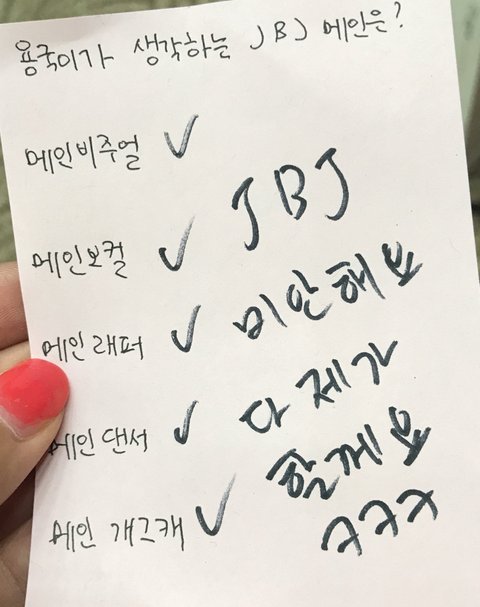 용국이가 생각하는 JBJ 메인은?
메인비주얼 ✓
메인보컬 ✓
메인래퍼 ✓
메인 댄서 ✓
메인 개그캐 ✓
JBJ
미안해요
다 제가
할께요
ㅋㅋㅋ